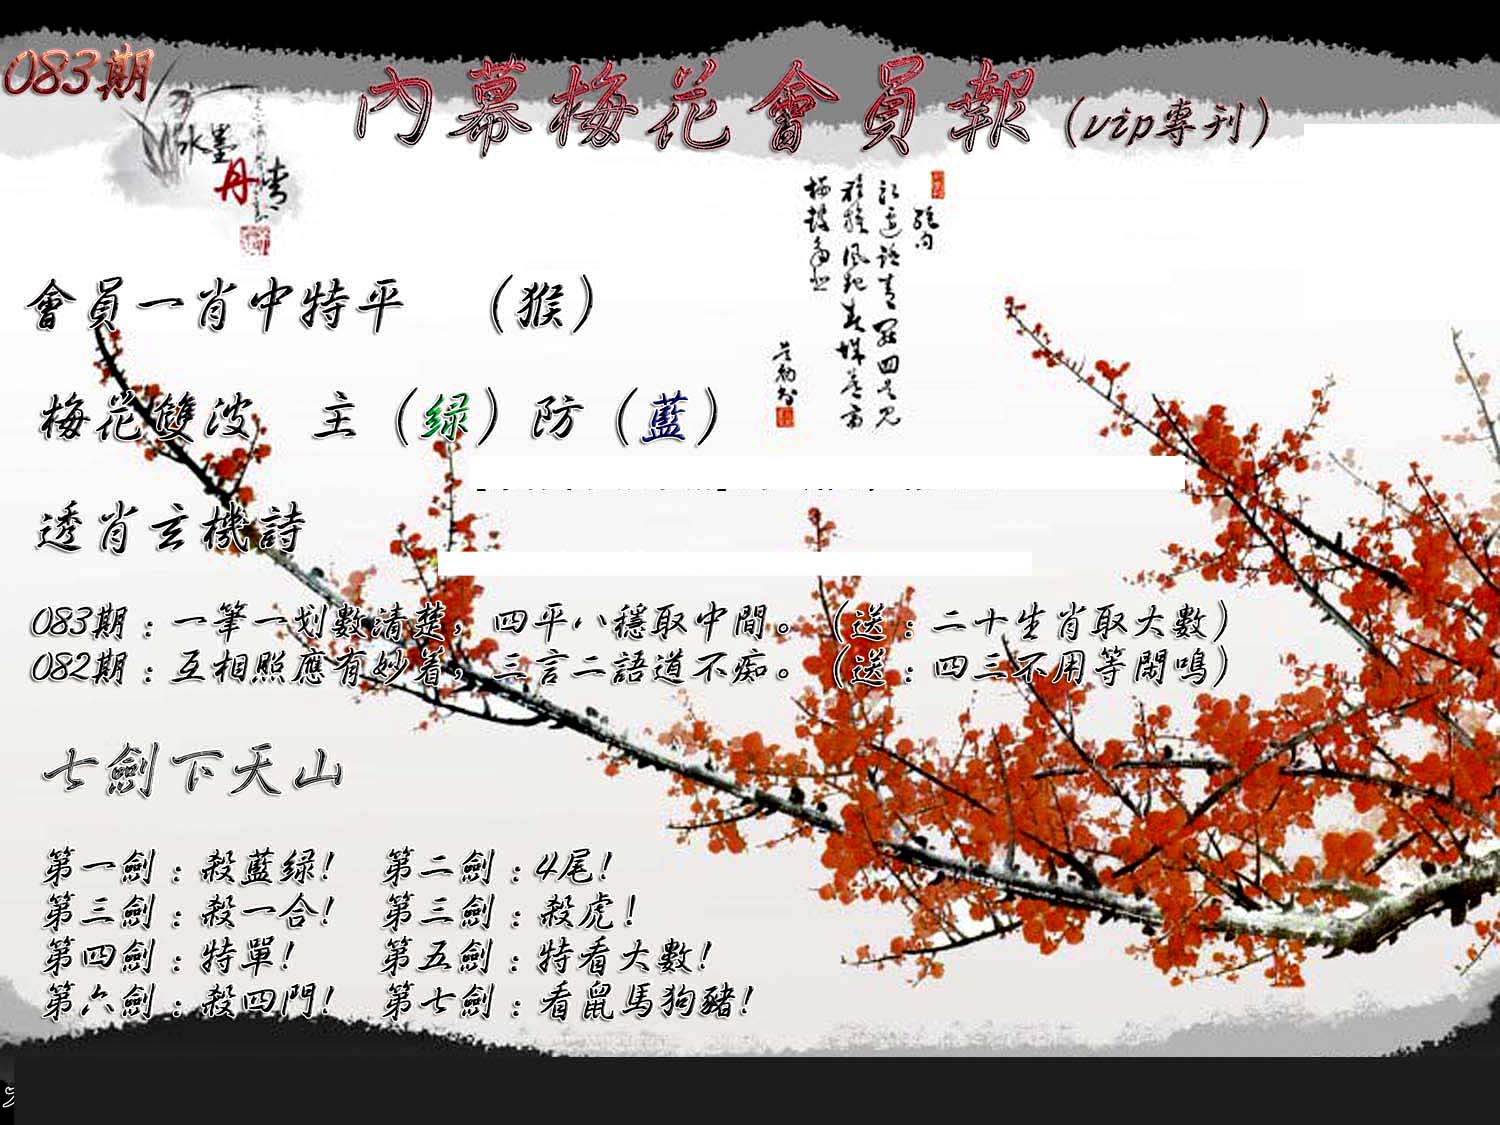 083期
內幕梅花會員報(vip專刊)
水墨
丹青
會員一肖中特平 (猴)
梅花雙波 主(绿)防(藍)
透肖玄機詩
083期:一筆一划數清楚,四平八穩取中間。(送:二十生肖取大數)
082期:互相照應有妙着,三言二語道不痴。(送:四三不用等閑鳴)
七劍下天山
第一劍:殺藍绿! 第二劍:4尾!
第三劍:殺一合! 第三劍:殺虎!
第四劍:特單! 第五劍:特看大數!
第六劍:殺四門! 第七劍:看鼠馬狗豬!